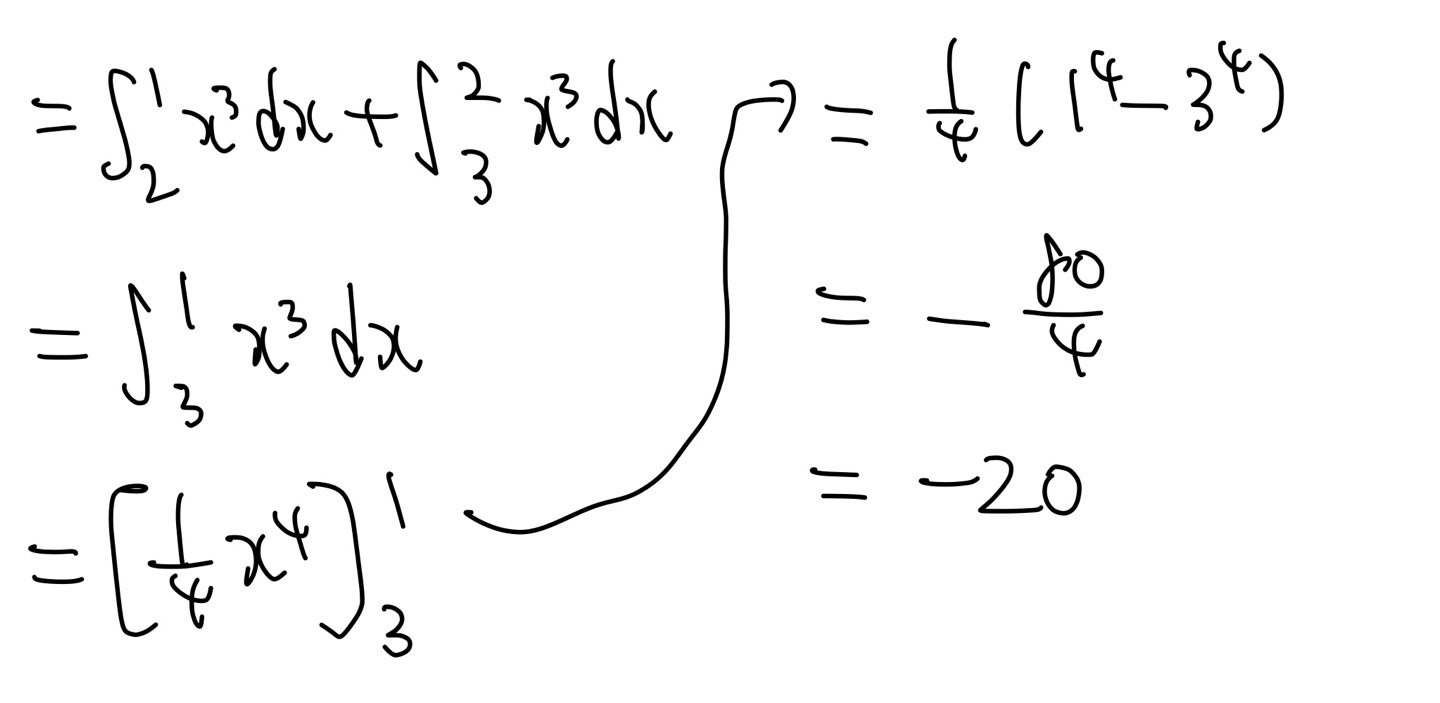 = ∫₂¹ x³ dx + ∫₃² x³ dx
= ∫₃¹ x³ dx
= [1/4 x⁴]₃¹
= 1/4 (1⁴ − 3⁴)
= − 80/4
= −20